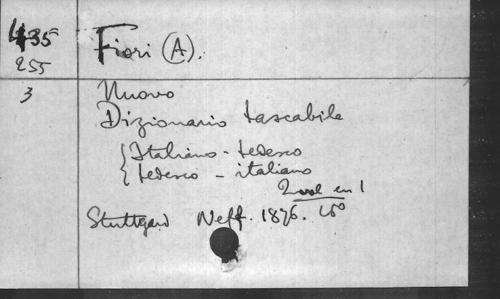 435
255
3
Fiori (A).
Nuovo
Dizionario tascabile
{Italiano - tedesco
{tedesco - italiano
2 vol en 1
Stuttgard Neff. 1876. 16°